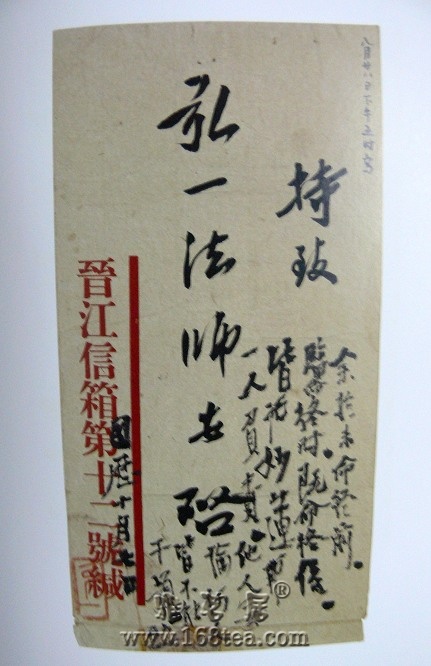 八月廿八日下午五時寫
持致
弘一法師安啓
余於未命終前。
臨命終時。既命終後。
皆托妙蓮師
一人負責。他人無
論何
皆不
干
國曆十月七日
晉江信箱第十二號緘
®
www.168tea.com